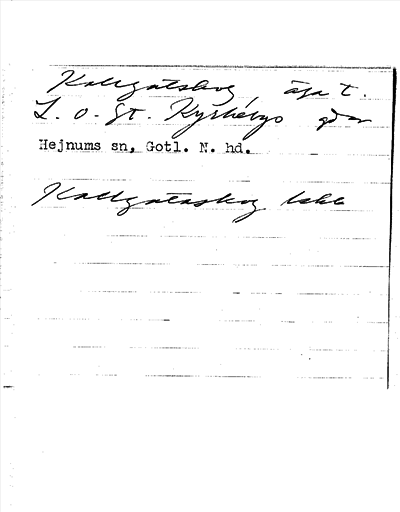 Kallgateskog, äga t.
L. o. St. Kyrkebys gdar
Hejnums sn, Gotl. N. hd.
Kallgateskog